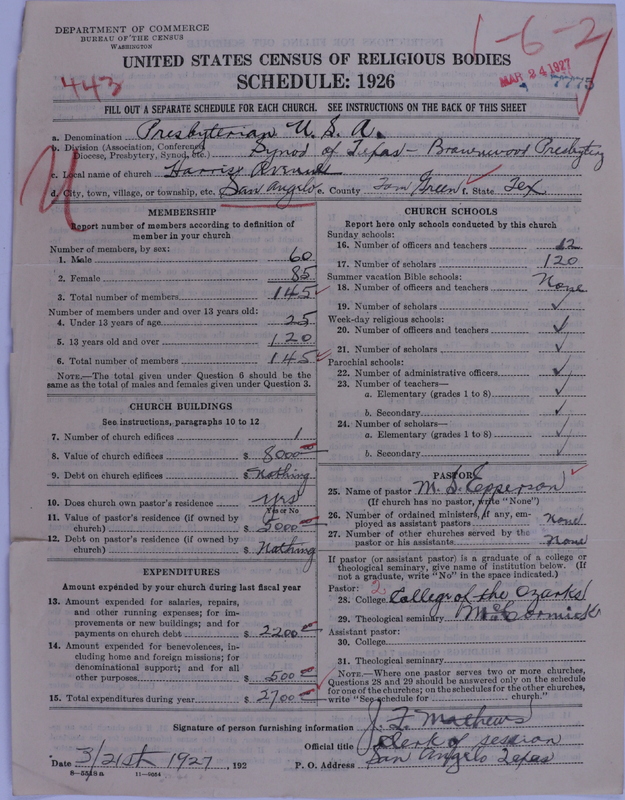 DEPARTMENT OF COMMERCE
BUREAU OF THE CENSUS
WASHINGTON
1-6-2
UNITED STATES CENSUS OF RELIGIOUS BODIES
SCHEDULE: 1926
443
MAR 24 1927
7775
FILL OUT A SEPARATE SCHEDULE FOR EACH CHURCH. SEE INSTRUCTIONS ON THE BACK OF THIS SHEET
a. Denomination Presbyterian U. S. A.
b. Division (Association, Conference, Diocese, Presbytery, Synod, etc.) Synod of Texas - Brownwood Presbytery
c. Local name of church Harris Avenue
d. City, town, village, or township, etc. San Angelo e. County Tom Green f. State Tex
MEMBERSHIP
Report number of members according to definition of
member in your church
Number of members, by sex:
1. Male 60
2. Female 85
3. Total number of members 145
Number of members under and over 13 years old:
4. Under 13 years of age 25
5. 13 years old and over 120
6. Total number of members 145
NOTE.—The total given under Question 6 should be the
same as the total of males and females given under Question 3.
CHURCH BUILDINGS
See instructions, paragraphs 10 to 12
7. Number of church edifices 1
8. Value of church edifices $ 8000
9. Debt on church edifices $ Nothing
10. Does church own pastor's residence yes
Yes or No
11. Value of pastor's residence (if owned by
church) $ 5000
12. Debt on pastor's residence (if owned by
church) $ Nothing
EXPENDITURES
Amount expended by your church during last fiscal year
13. Amount expended for salaries, repairs,
and other running expenses; for im-
provements or new buildings; and for
payments on church debt $ 2200
14. Amount expended for benevolences, in-
cluding home and foreign missions; for
denominational support; and for all
other purposes $ 500
15. Total expenditures during year $ 2700
CHURCH SCHOOLS
Report here only schools conducted by this church
Sunday schools:
16. Number of officers and teachers 12
17. Number of scholars 120
Summer vacation Bible schools:
18. Number of officers and teachers None
19. Number of scholars ✓
Week-day religious schools:
20. Number of officers and teachers ✓
21. Number of scholars ✓
Parochial schools:
22. Number of administrative officers ✓
23. Number of teachers—
a. Elementary (grades 1 to 8) ✓
b. Secondary ✓
24. Number of scholars—
a. Elementary (grades 1 to 8) ✓
b. Secondary ✓
PASTOR
25. Name of pastor M. S. Epperson
(If church has no pastor, write "None")
26. Number of ordained ministers, if any, em-
ployed as assistant pastors None
27. Number of other churches served by the
pastor or his assistants None
If pastor (or assistant pastor) is a graduate of a college or
theological seminary, give name of institution below. (If
not a graduate, write "No" in the space indicated.)
Pastor: 2
28. College College of the Ozarks
29. Theological seminary McCormick
Assistant pastor:
30. College
31. Theological seminary
NOTE.—Where one pastor serves two or more churches,
Questions 28 and 29 should be answered only on the schedule
for one of the churches; on the schedules for the other churches,
write "See schedule for church."
Signature of person furnishing information J. F. Mathews
Official title Clerk of session
Date 3/21st 1927, 192 P. O. Address San Angelo Texas
11—9064